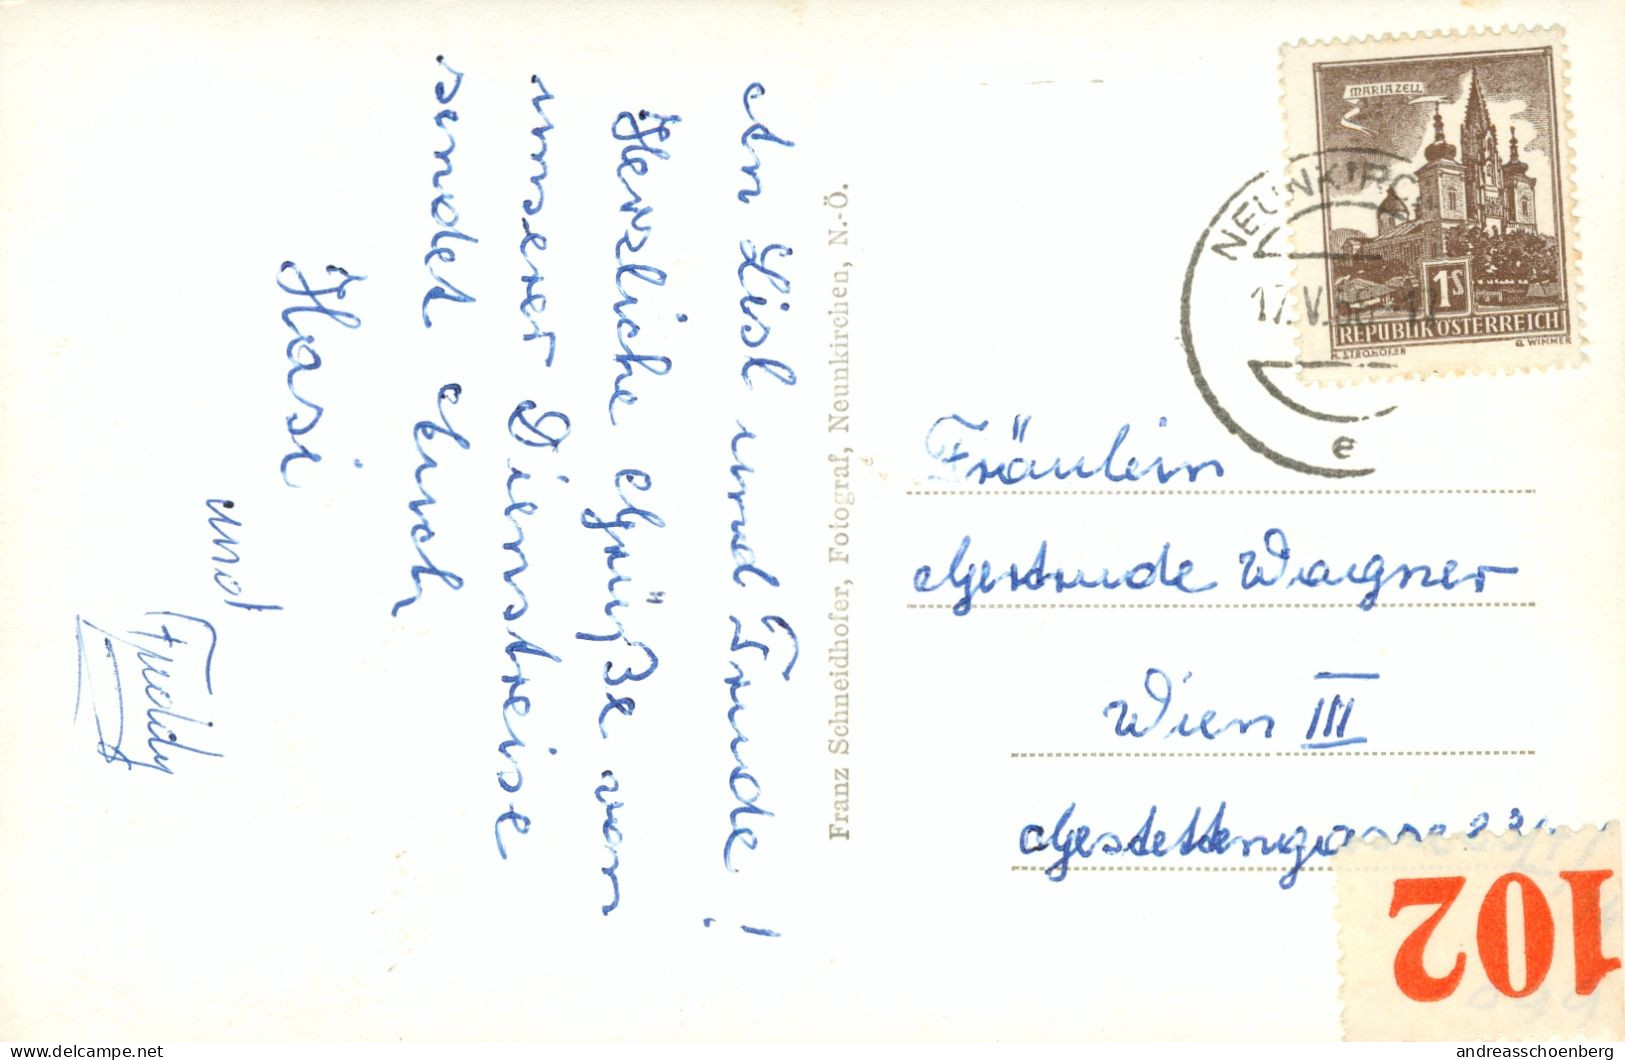 An Lisl und Trude!
Herzliche Grüße von
unserer Dienstreise
sendet Euch
Hasi
und
Freddy
Franz Schneidhofer, Fotograf, Neunkirchen, N.-Ö.
MARIAZELL
1S
REPUBLIK ÖSTERREICH
G. WIMMER
NEUNKIRCH
17.V.
e
Fräulein
Gertrude Wagner
Wien III
Gestettengasse
102
hipostcard.com
andreasschoenberg